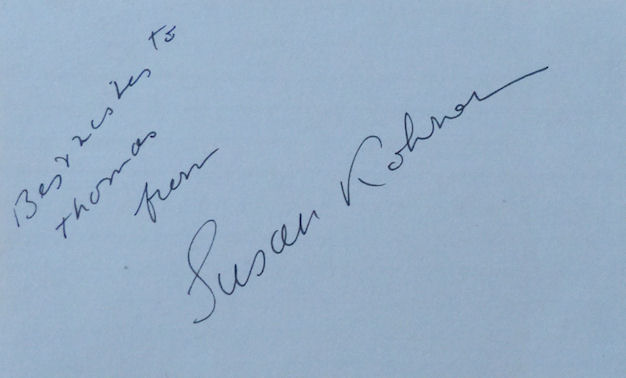 Best wishes to
Thomas
from
Susan Kohner